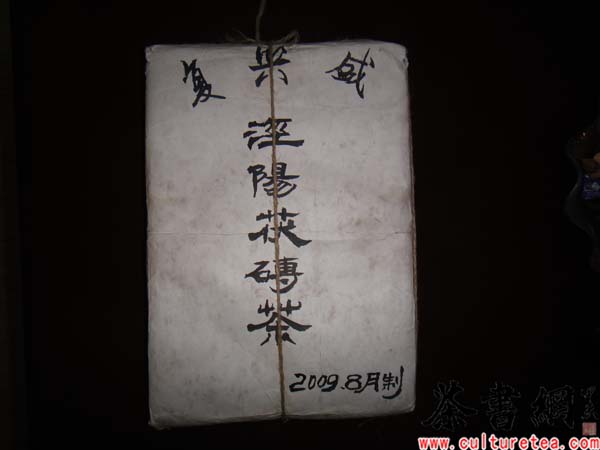 复興盛
涇陽茯磚茶
2009.8月制
茶書網
www.culturetea.com